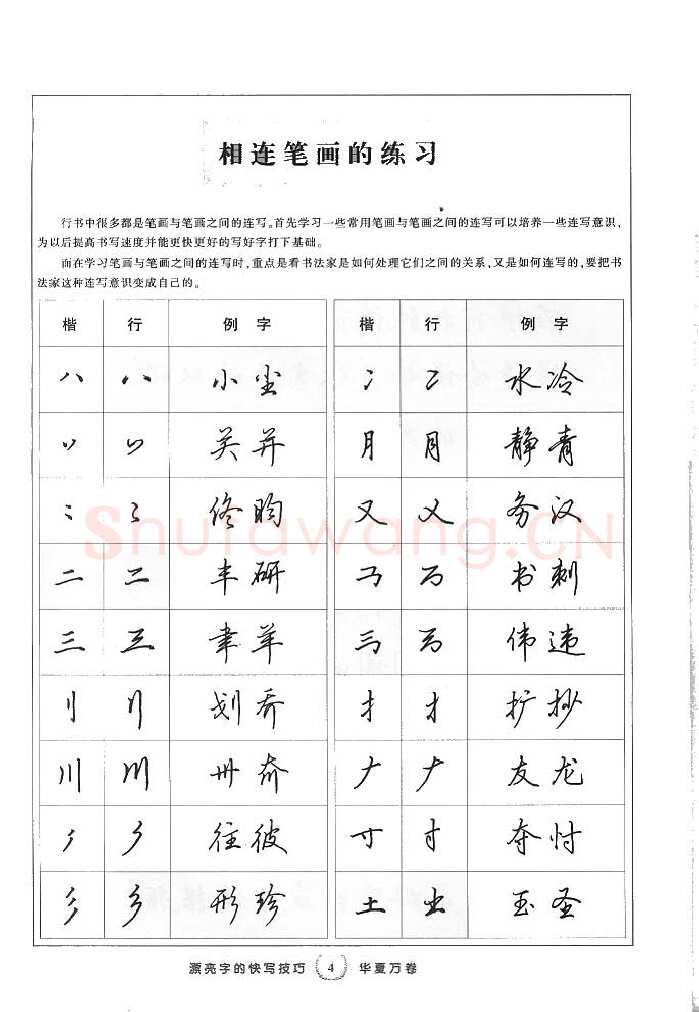 相连笔画的练习
行书中很多都是笔画与笔画之间的连写。首先学习一些常用笔画与笔画之间的连写可以培养一些连写意识，
为以后提高书写速度并能更快更好的写好字打下基础。
而在学习笔画与笔画之间的连写时，重点是看书法家是如何处理它们之间的关系，又是如何连写的，要把书
法家这种连写意识变成自己的。
楷 行 例字 楷 行 例字
八 八 小尘 冫 冫 水冷
丷 丷 关并 月 月 静青
佟昀 又 又 务汉
二 二 丰研 书刺
三 三 聿羊 伟违
刂 刂 划乔 扌 扌 扩抄
川 川 卅奔 𠂇 𠂇 友龙
往彼 寸 寸 夺忖
彡 彡 形珍 土 土 玉圣
Shufawang.CN
漂亮字的快写技巧 4 华夏万卷